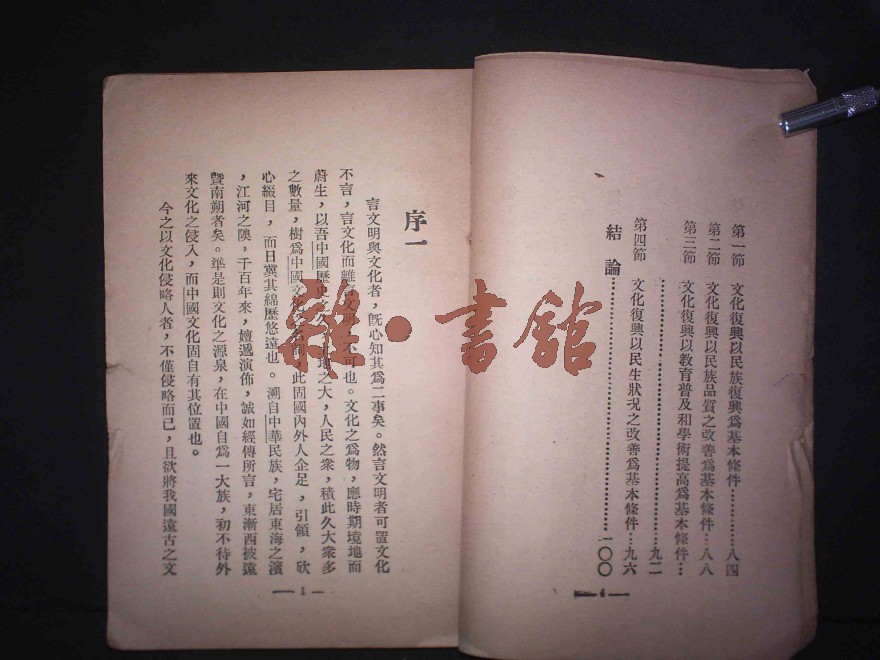 第一節　文化復興以民族復興爲基本條件…………八四
第二節　文化復興以民族品質之改善爲基本條件…八八
第三節　文化復興以教育普及和學術提高爲基本條件…
…………………………………………九二
第四節　文化復興以民生狀况之改善爲基本條件…九六
結　論……………………………………一〇〇
— 4 —
序一
言文明與文化者，旣心知其爲二事矣。然言文明者可置文化
不言，言文化而離文　不可也。文化之爲物，應時期境地而
蔚生，以吾中國歷史之久，　地之大，人民之衆，積此久大衆多
之數量，樹爲中國文化　，此固國內外人企足，引領，欣
心綴目，而日冀其綿歷悠遠也。溯自中華民族，宅居東海之濱
，江河之隩，千百年來，嬗遞演佈，誠如經傳所言，東漸西被遠
曁南朔者矣。準是則文化之源泉，在中國自爲一大族，初不待外
來文化之侵入，而中國文化固自有其位置也。
今之以文化侵略人者，不僅侵略而已，且欲將我國遠古之文
— 1 —
雜·書館